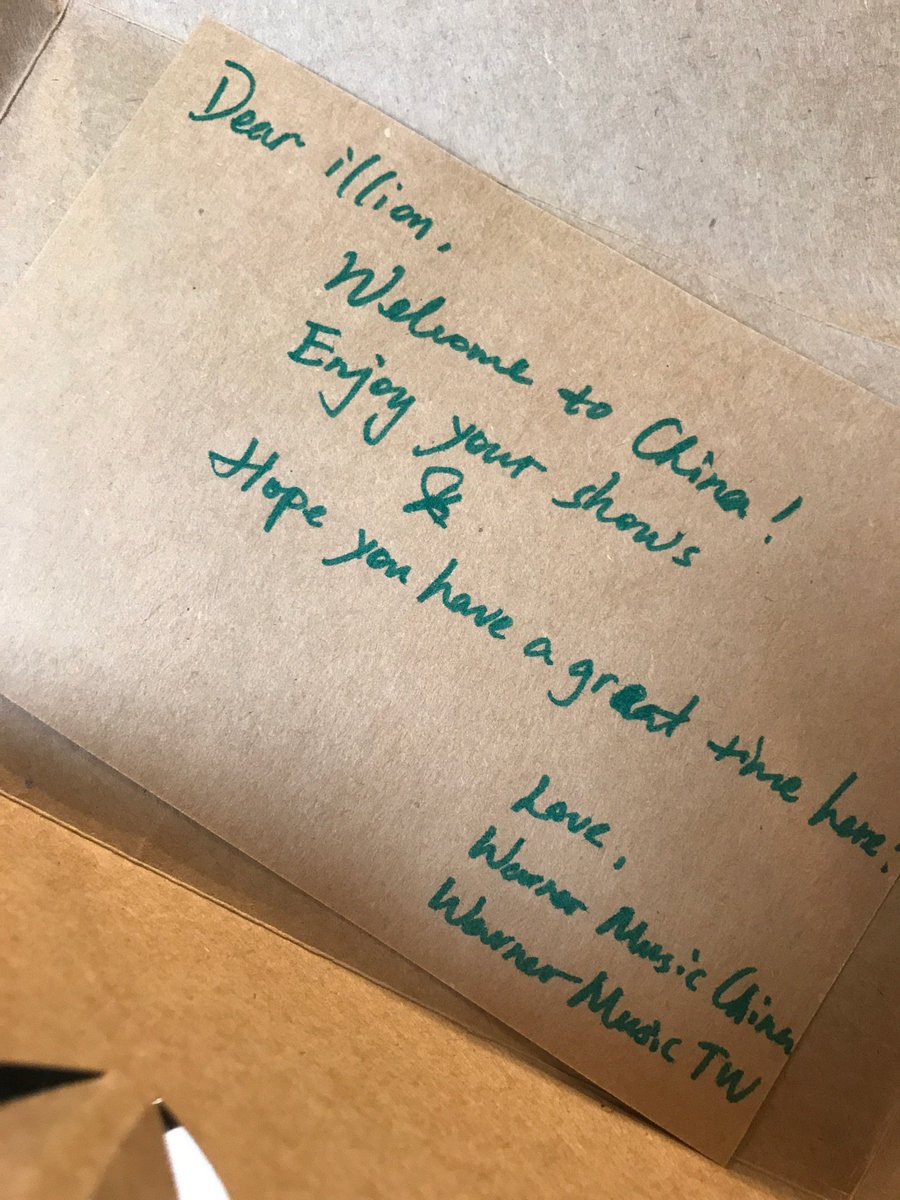 Dear illion,
Welcome to China!
Enjoy your shows
&
Hope you have a great time here!
Love,
Warner Music China
Warner Music TW